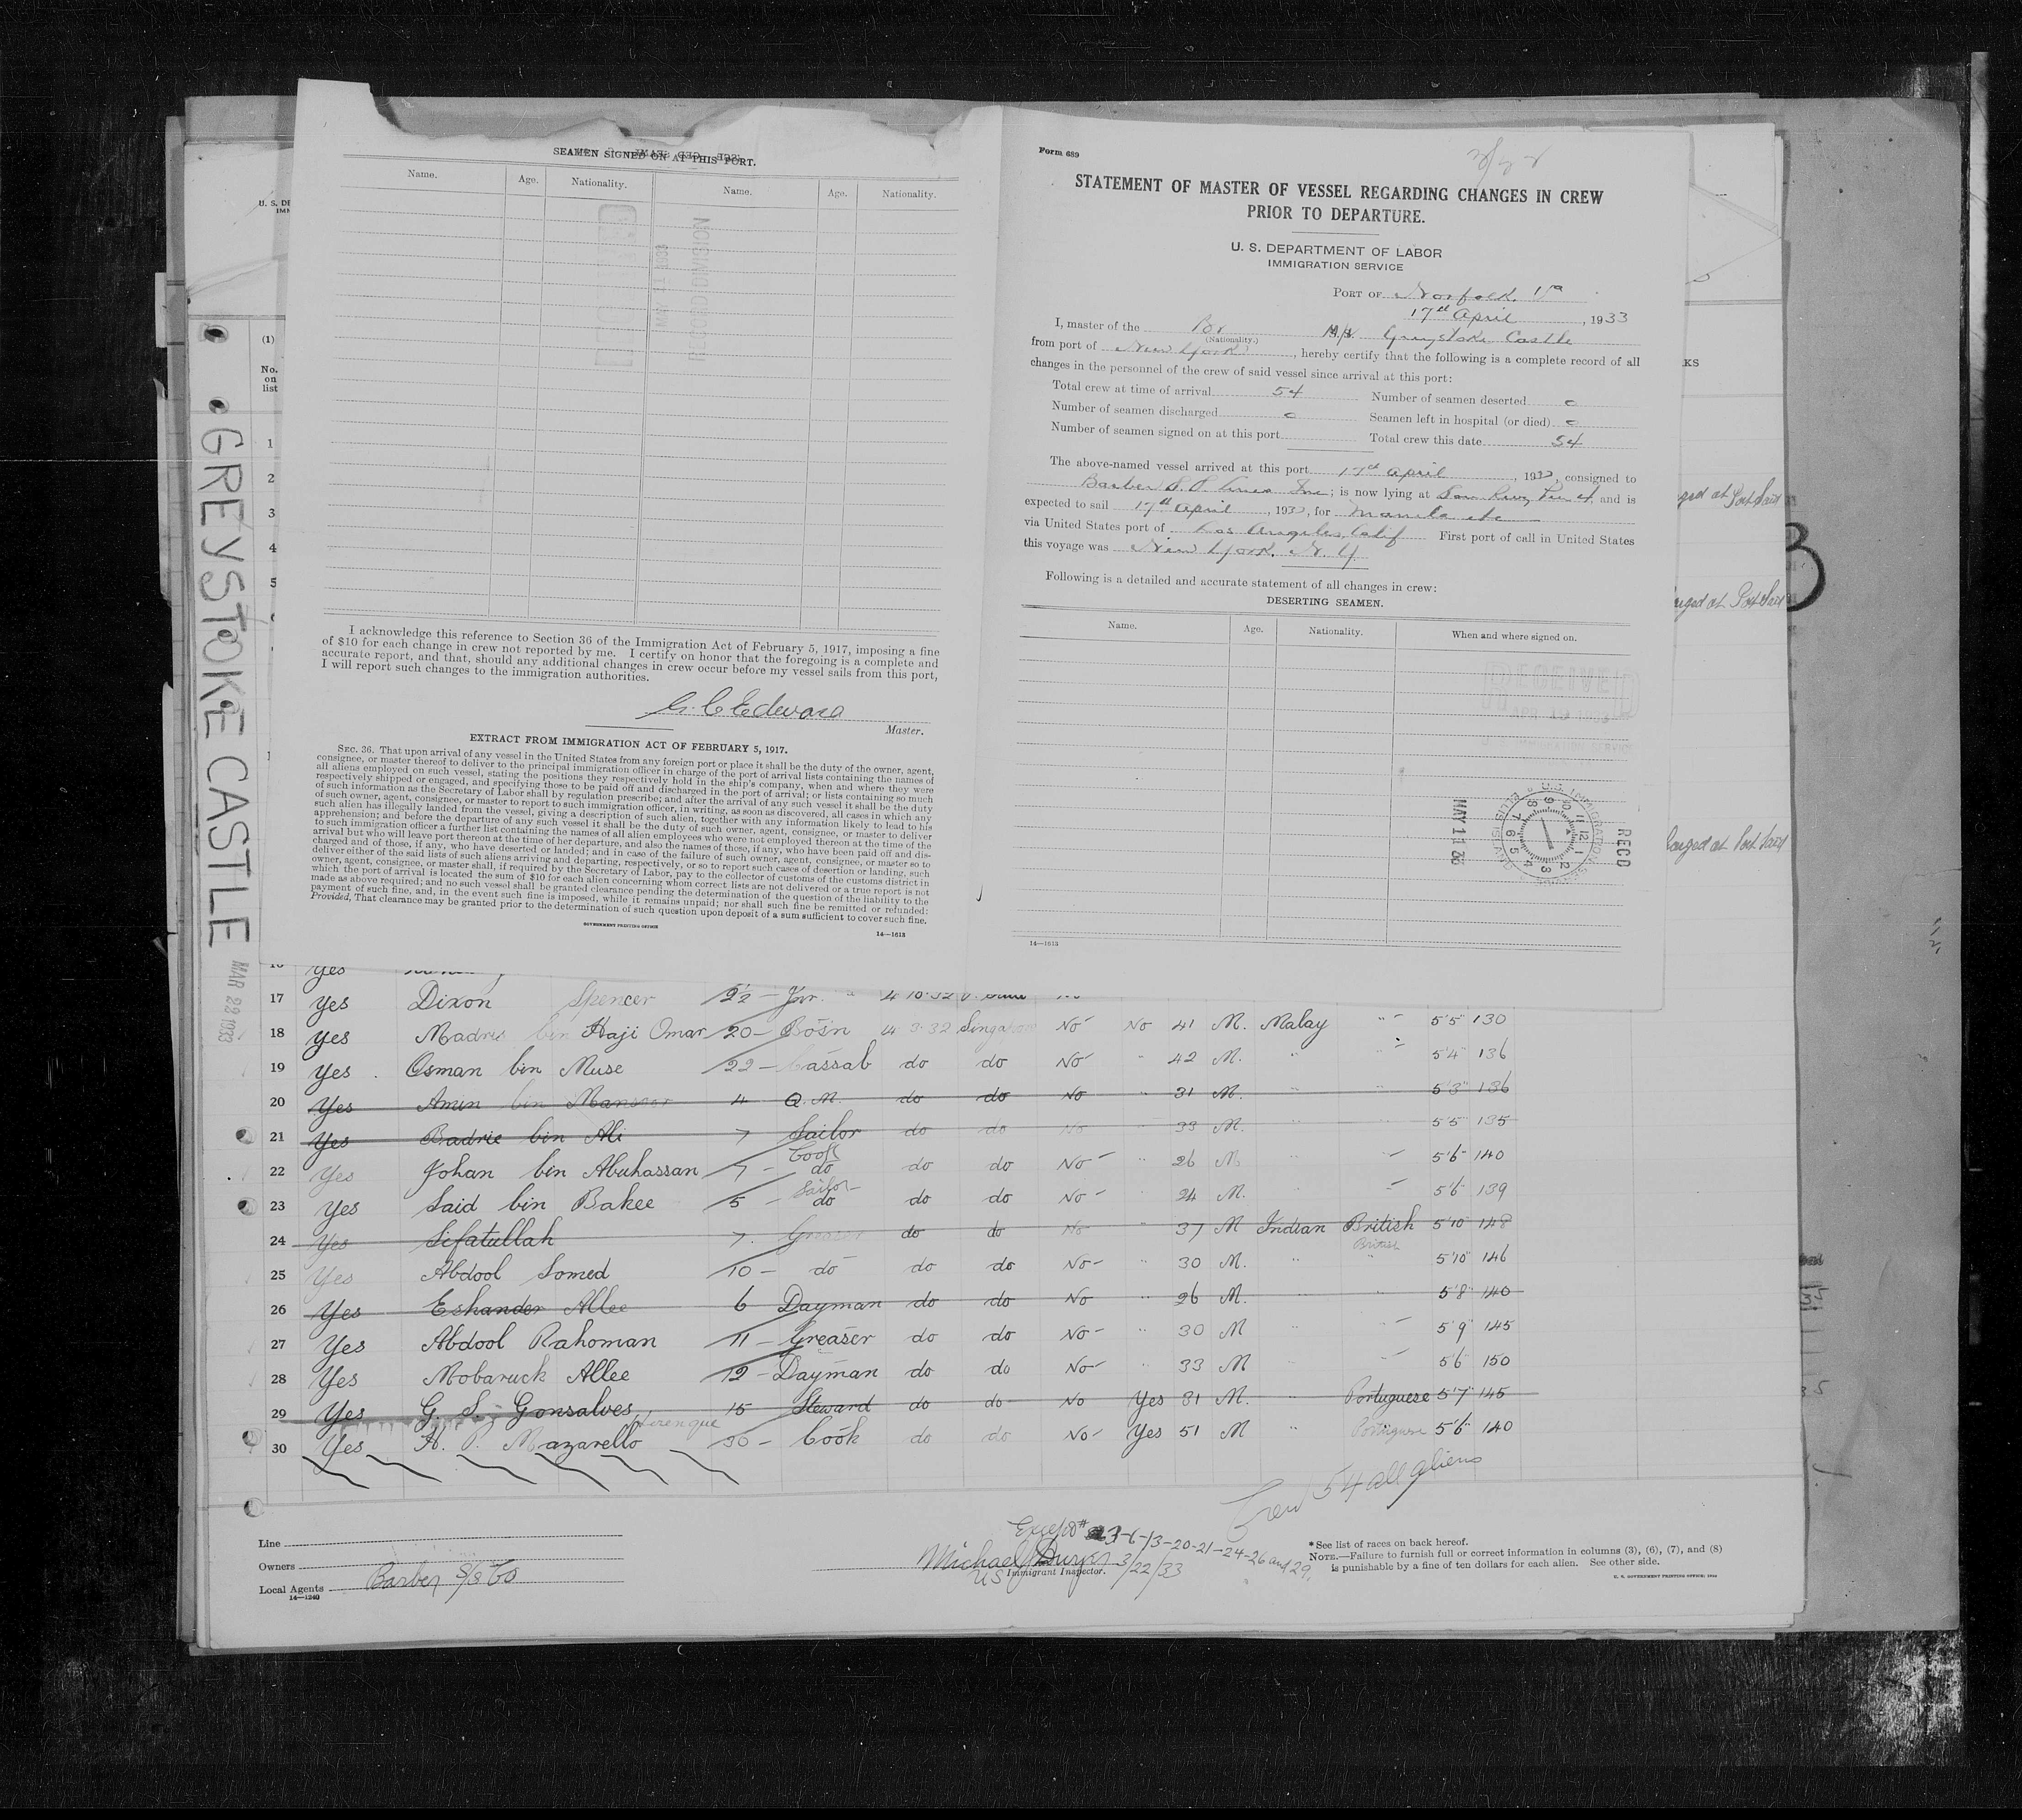 SEAMEN SIGNED ON AT THIS PORT.
Name. Age. Nationality. Name. Age. Nationality.
I acknowledge this reference to Section 36 of the Immigration Act of February 5, 1917, imposing a fine
of $10 for each change in crew not reported by me. I certify on honor that the foregoing is a complete and
accurate report, and that, should any additional changes in crew occur before my vessel sails from this port,
I will report such changes to the immigration authorities.
G. C. Edwards
Master.
EXTRACT FROM IMMIGRATION ACT OF FEBRUARY 5, 1917.
SEC. 36. That upon arrival of any vessel in the United States from any foreign port or place it shall be the duty of the owner, agent,
consignee, or master thereof to deliver to the principal immigration officer in charge of the port of arrival lists containing the names of
all aliens employed on such vessel, stating the positions they respectively hold in the ship's company, when and where they were
respectively shipped or engaged, and specifying those to be paid off and discharged in the port of arrival; or lists containing so much
of such information as the Secretary of Labor shall by regulation prescribe; and after the arrival of any such vessel it shall be the duty
of such owner, agent, consignee, or master to report to such immigration officer, in writing, as soon as discovered, all cases in which any
such alien has illegally landed from the vessel, giving a description of such alien, together with any information likely to lead to his
apprehension; and before the departure of any such vessel it shall be the duty of such owner, agent, consignee, or master to deliver
to such immigration officer a further list containing the names of all alien employees who were not employed thereon at the time of the
arrival but who will leave port thereon at the time of her departure, and also the names of those, if any, who have been paid off and dis-
charged and of those, if any, who have deserted or landed; and in case of the failure of such owner, agent, consignee, or master so to
deliver either of the said lists of such aliens arriving and departing, respectively, or so to report such cases of desertion or landing, such
owner, agent, consignee, or master shall, if required by the Secretary of Labor, pay to the collector of customs of the customs district in
which the port of arrival is located the sum of $10 for each alien concerning whom correct lists are not delivered or a true report is not
made as above required; and no such vessel shall be granted clearance pending the determination of the question of the liability to the
payment of such fine, and, in the event such fine is imposed, while it remains unpaid; nor shall such fine be remitted or refunded:
Provided, That clearance may be granted prior to the determination of such question upon deposit of a sum sufficient to cover such fine.
GOVERNMENT PRINTING OFFICE
14—1613
Form 689
STATEMENT OF MASTER OF VESSEL REGARDING CHANGES IN CREW
PRIOR TO DEPARTURE.
U. S. DEPARTMENT OF LABOR
IMMIGRATION SERVICE
PORT OF Norfolk, Va
17th April, 1933
I, master of the Br M/V. Greystoke Castle
(Nationality.)
from port of New York, hereby certify that the following is a complete record of all
changes in the personnel of the crew of said vessel since arrival at this port:
Total crew at time of arrival 54 Number of seamen deserted 0
Number of seamen discharged 0 Seamen left in hospital (or died) 0
Number of seamen signed on at this port Total crew this date 54
The above-named vessel arrived at this port 17th April, 1933, consigned to
Barber S. S. Lines Inc; is now lying at Pier 4, and is
expected to sail 17th April, 1933, for Manila etc
via United States port of Los Angeles, Calif First port of call in United States
this voyage was New York, N. Y.
Following is a detailed and accurate statement of all changes in crew:
DESERTING SEAMEN.
Name. Age. Nationality. When and where signed on.
RECEIVED
APR 19 1933
MAY 11
U.S. IMMIGRATION SERVICE
12 1 2 3 4 5 6 7 8 9 10 11
RECD
14—1613
(1)
No.
on
list
1
2
3
4
5
GREYSTOKE CASTLE
MAR 22 1933
at Port Said
at Port Said
at Port Said
17 Yes Dixon Spencer
18 Yes Madris bin Haji Omar 20 Bosn 4 3 32 Singapore No No 41 M. Malay 5'5" 130
19 Yes Osman bin Muse 22 Cassab do do No " 42 M. " 5'4" 136
20 Yes Amin bin Mansoor 4 Q.M. do do No " 31 M. " 5'3" 136
21 Yes Badrie bin Ali 7 Sailor do do No " 33 M. " 5'5" 135
22 Yes Johan bin Abuhassan 7 Cook do do do No " 26 M " 5'6" 140
23 Yes Said bin Bakee 5 Sailor do do do No " 24 M. " 5'6" 139
24 Yes Sifatullah 7 Greaser do do No " 37 M Indian British 5'10" 148
25 Yes Abdool Somed 10 do do do No " 30 M. " British 5'10" 146
26 Yes Eshander Allee 6 Dayman do do No " 26 M. " 5'8" 140
27 Yes Abdool Rahoman 11 Greaser do do No " 30 M " 5'9" 145
28 Yes Mobaruck Allee 12 Dayman do do No " 33 M " 5'6" 150
29 Yes G. S. Gonsalves 15 Steward do do No Yes 31 M. " Portuguese 5'7" 145
30 Yes H. P. Mazarello 30 Cook do do No Yes 51 M " Portuguese 5'6" 140
Crew 54 all aliens
Except # 3-6-13-20-21-24-26 and 29.
Line
Owners
Local Agents Barber S/S Co
14—1240
Michael 3/22/33
US Immigrant Inspector.
* See list of races on back hereof.
NOTE.—Failure to furnish full or correct information in columns (3), (6), (7), and (8)
is punishable by a fine of ten dollars for each alien. See other side.